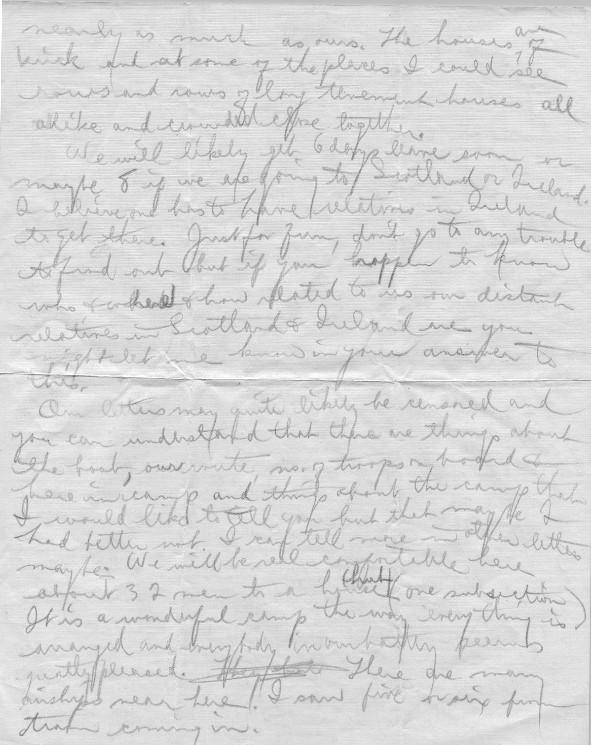 nearly as much as ours. The houses are of
brick and at some of the places I could see
rows and rows of long tenement houses all
alike and crowded close together.
We will likely get 6 days leave soon or
maybe 8 if we are going to Scotland or Ireland.
I believe one has to have relatives in Ireland
to get there. Just for fun, don't go to any trouble
to find out but if you happen to know
who & where & how related to us our distant
relatives in Scotland & Ireland are you
might let me know in your answer to
this.
Our letters may quite likely be censored and
you can understand that there are things about
the boat, our route, no. of troops on board &
here in camp and things about the camp that
I would like to tell you but that maybe I
had better not. I can tell more in other letters
maybe. We will be real comfortable here
about 32 men to a house (hut) (one subsection)
It is a wonderful camp the way everything is
arranged and everybody in our battery seems
greatly pleased. There are many
airships near here. I saw five or six from
train coming in.